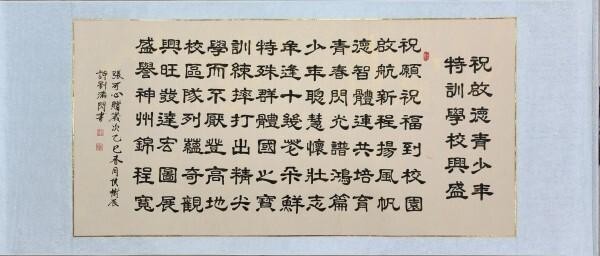 祝啟德青少年
特訓學校興盛
祝願祝福到校園
啟航新程揚風帆
德智體連共培育
青春閃光譜鴻篇
少年聰慧懷壯志
年逢十幾花朵鮮
特殊群體國之寶
訓練摔打出精尖
學而不厭登高地
校區隊列蘊奇觀
興旺發達宏圖展
盛譽神州錦程寬
張可心贈歲次乙巳春月侯樹辰
詩劉滿閣書